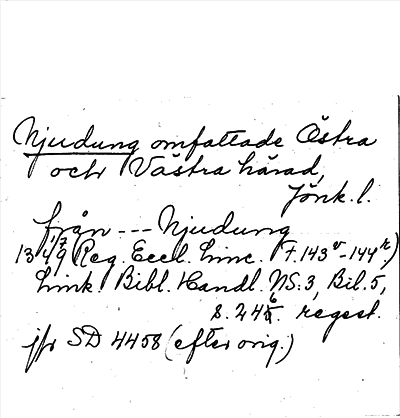 Njudung omfattade Östra
och Västra härad,
Jönk. l.
från --- Njudung
13 4/7 9 Reg. Eccl. Linc. F. 143v-144r)
Link. Bibl. Handl. NS: 3, Bil. 5,
s. 246. regest.
jfr SD 4458 (efter orig.)